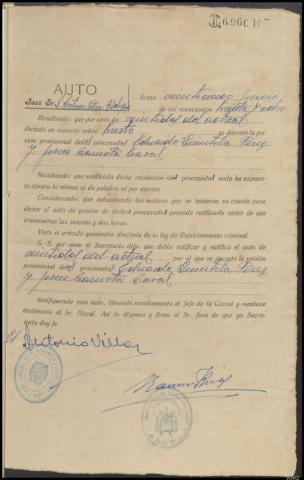 AUTO
Juez Sr. D. Antonio Villar
Arzúa veinticinco Junio
de mil novecientos treinta y ocho
Resultando: que por auto de veintidos del actual
dictado en sumario sobre hurto se decretó la pri-
sión provisional del procesado Eduardo Quintela Pérez
y Josefa
Resultando: que notificada dicha resolución al procesado nada ha expues-
to contra la misma ni de palabra ni por escrito.
Considerando: que subsistiendo los motivos que se tuvieron en cuenta para
dictar el auto de prisión de dichos procesados procede ratificarla antes de que
transcurran las setenta y dos horas.
Visto el artículo quinientos dieciseis de la ley de Enjuiciamiento criminal.
S. S. por ante el Secretario dijo: que debía ratificar y ratifica el auto de
veintidos del actual por el que se decretó la prisión
provisional del procesado Eduardo Quintela Pérez
y Josefa
Notifíquese este auto, líbrese mandamiento al Jefe de la Cárcel y remítase
testimonio al Sr. Fiscal. Así lo dispuso y firma el Sr. Juez de que yo Secre-
tario doy fe
Antonio Villar